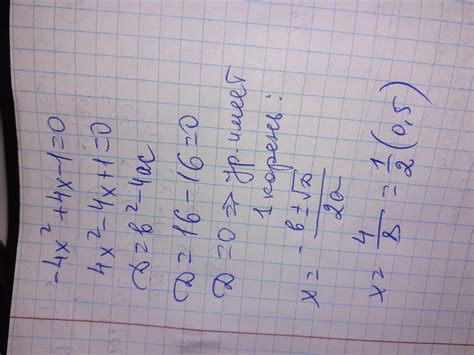 -4x²+4x-1=0
4x²-4x+1=0
D=b²-4ac
D=16-16=0
D=0 => ур. имеет
1 корень:
x= -b±√D/2a
x= 4/8 = 1/2 (0,5)